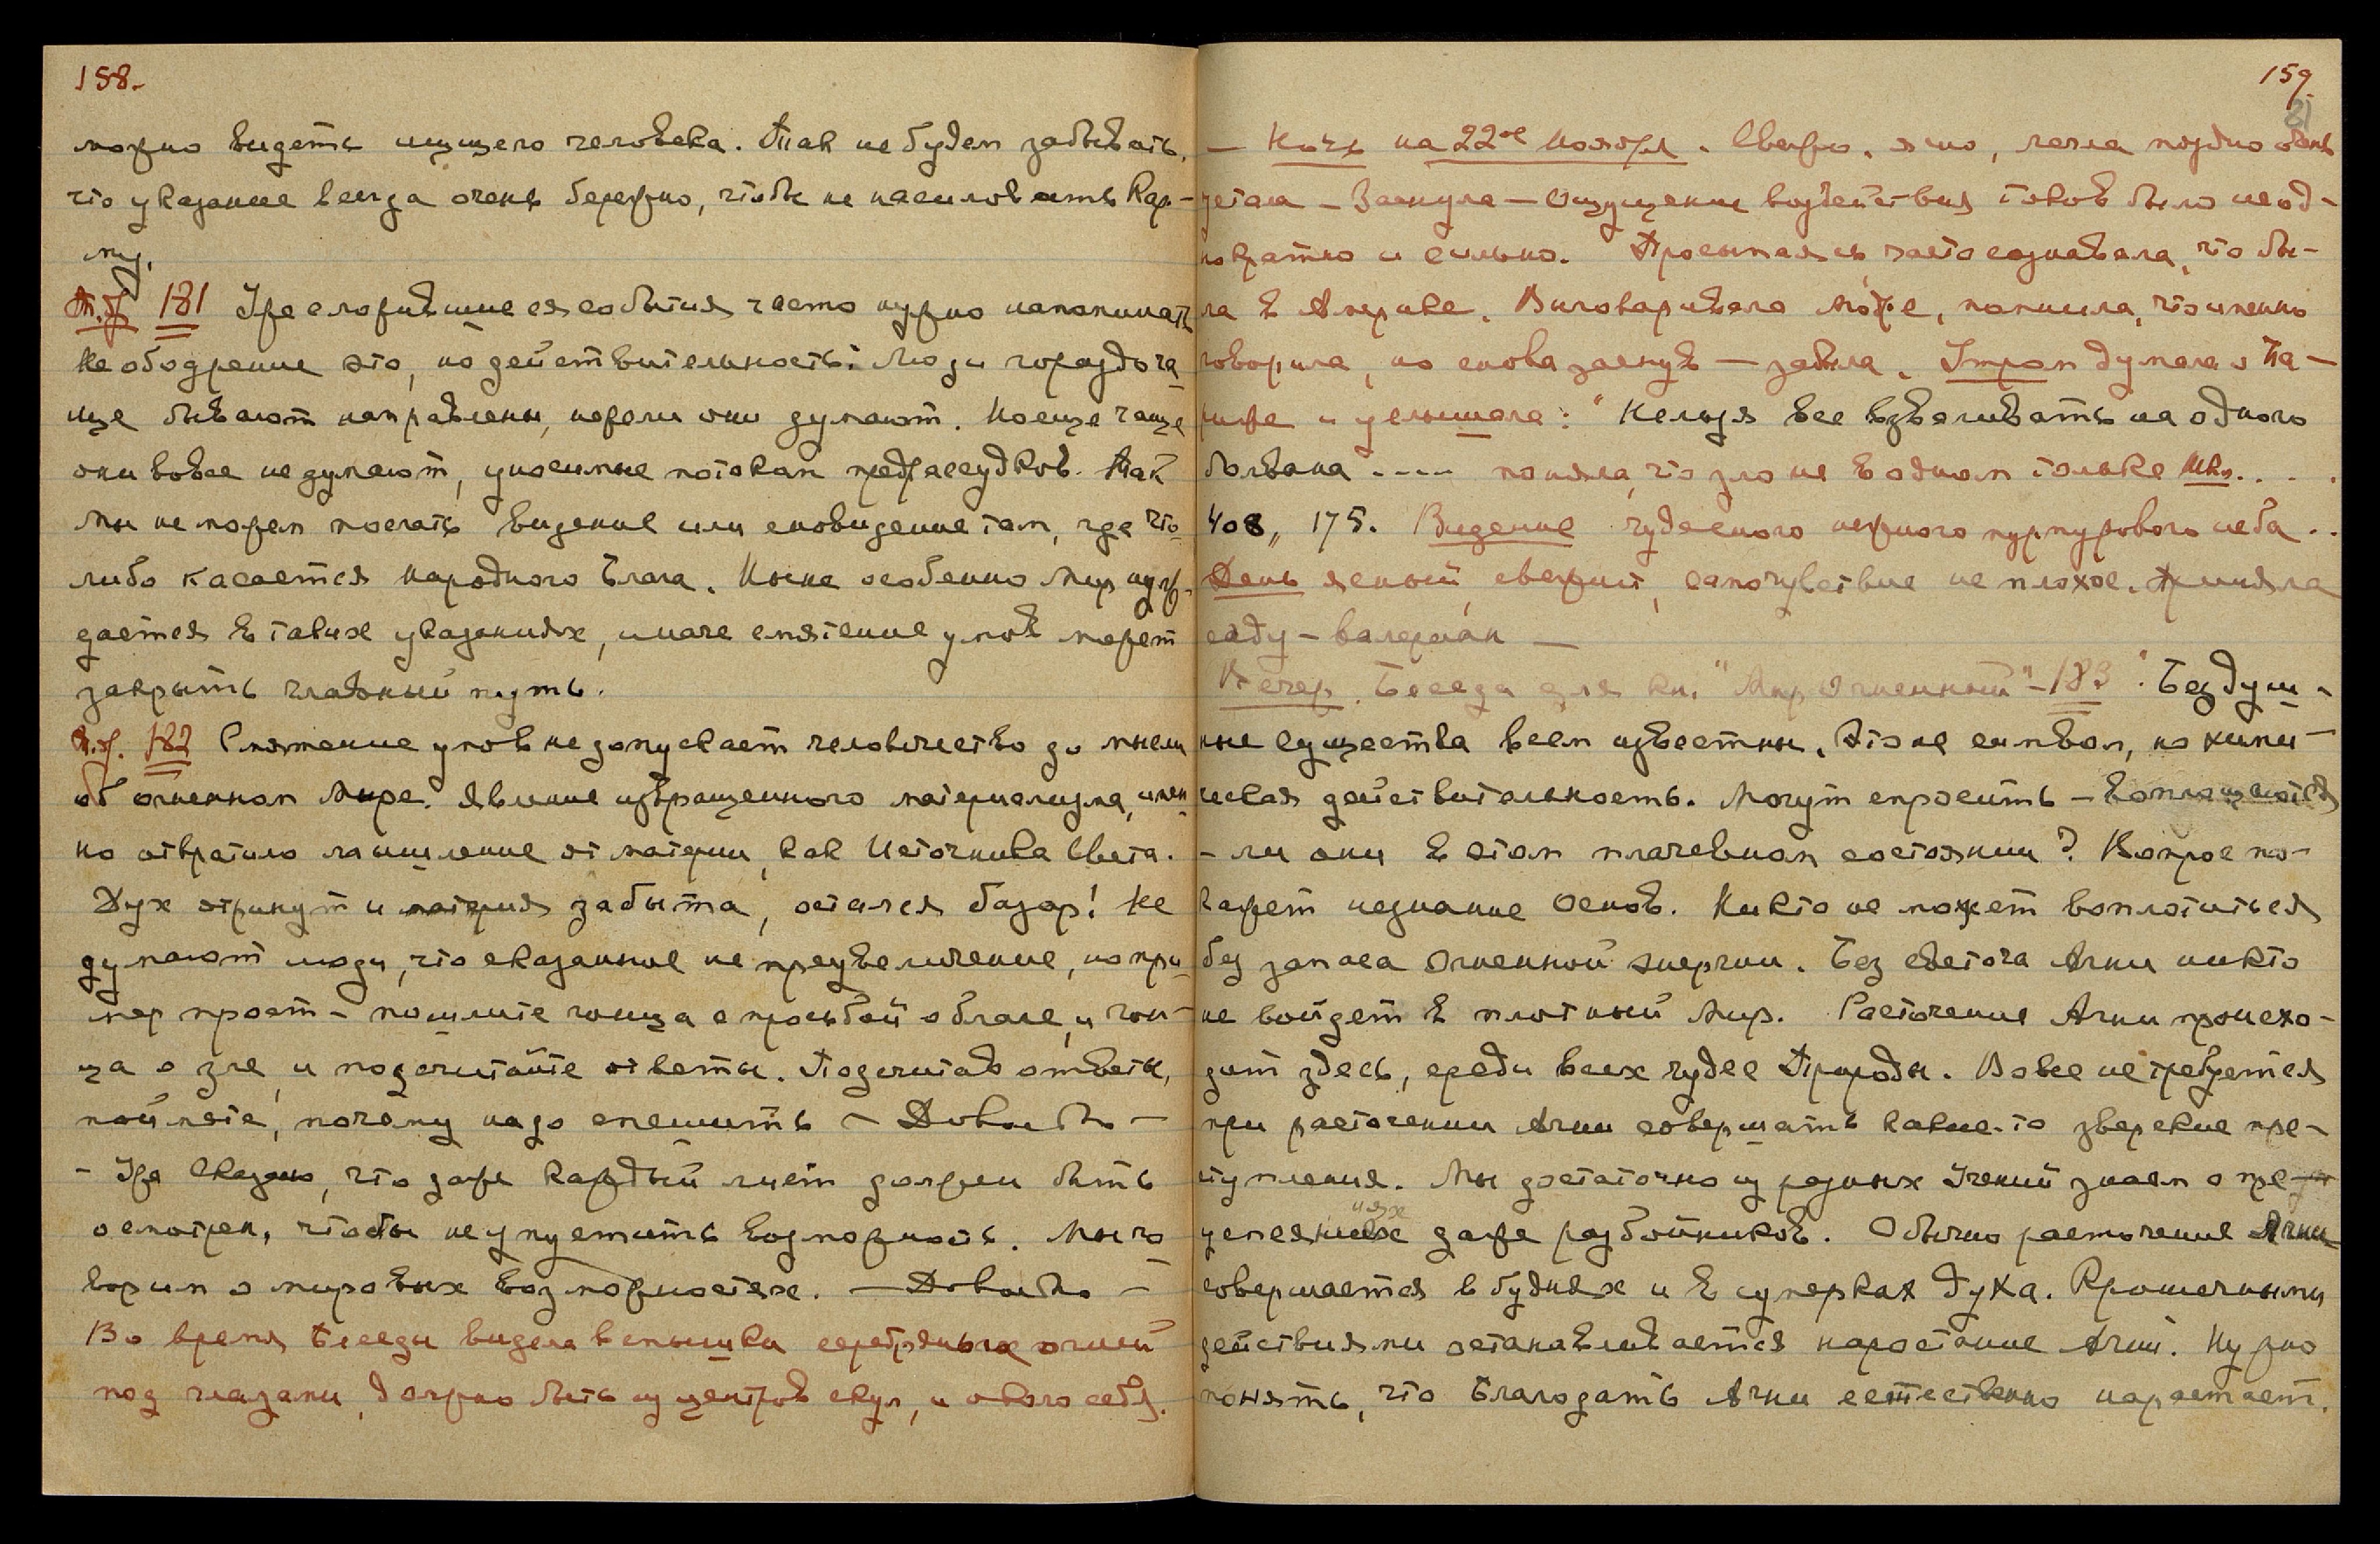 158.
можно видеть ищущего человека. Так не будем забывать,
что указание всегда очень бережно, чтобы не насиловать Кар-
му.
181 Уже сложившиеся события часто нужно напоминать
Не ободрение это, но действительность. Люди гораздо ча-
ще бывают направлены, нежели они думают. Но еще чаще
они вовсе не думают, уносимые потокам предрассудков. Так
Мы не можем послать видение или сновидение там, где что-
либо касается Народного Блага. Ныне особенно Мир нуж-
дается в таких указаниях, иначе смятение умов может
закрыть главный путь.
182 Смятение умов не допускает человечество до мысли
об огненном Мире. Явление извращенного материализма, имен-
но отвратило мышление от материи, как Источника Света.
Дух отринут и материя забыта, остался базар! Не
думают люди, что сказанное не преувеличение, но при-
мер прост – пошлите гонца с просьбой о благе, и гон-
ца о зле, и подсчитайте ответы. Подсчитав ответы,
поймете, почему надо спешить – Довольно –
– Уже Сказано, что даже каждый лист должен быть
осмотрен, чтобы не упустить возможность. Мы го
ворим о мировых возможностях. – Довольно –
Во время Беседы видела вспышки серебряных огней
под глазами, должно быть из центров скул, и около себя.
159.
– Ночь на 22ое Ноября. Свежо, ясно, легла поздно очень
устала – Заснула – Ощущение воздействия токов было неод-
нократно и сильно. Просыпаясь, часто сознавала, что бы-
ла в Америке. Выговаривала Може, помнила, что именно
говорила, но снова заснув – забыла. Утром думала о Па-
риже и услышала: "Нельзя все взваливать на одного
болвана ---- поняла, что зло не в одном только Шкл....
408,, 175. Видение чудесного нежного пурпурового неба..
День ясный, свежий, самочувствие не плохое. Приняла
соду – валериан –
Вечер. Беседа для кн. "Мир Огненный" – 183 "Бездуш-
ные существа всем известны. Это не символ, но хими-
ческая действительность. Могут спросить – воплощаются
– ли они в этом плачевном состоянии? Вопрос по-
кажет незнание Основ. Никто не может воплотиться
без запаса Огненной энергии. Без светоча Агни никто
не войдет в плотный Мир. Расточение Агни происхо-
дит здесь, среди всех чудес Природы. Вовсе не требуется
при расточении Агни совершать какие-то зверские пре-
ступления. Мы достаточно из разных Учений знаем о пре-
успеяниях даже разбойников. Обычно расточение Агни
совершается в буднях и в сумерках духа. Крошечными
действиями останавливается нарастание Агни. Нужно
понять, что Благодать Агни естественно нарастает.